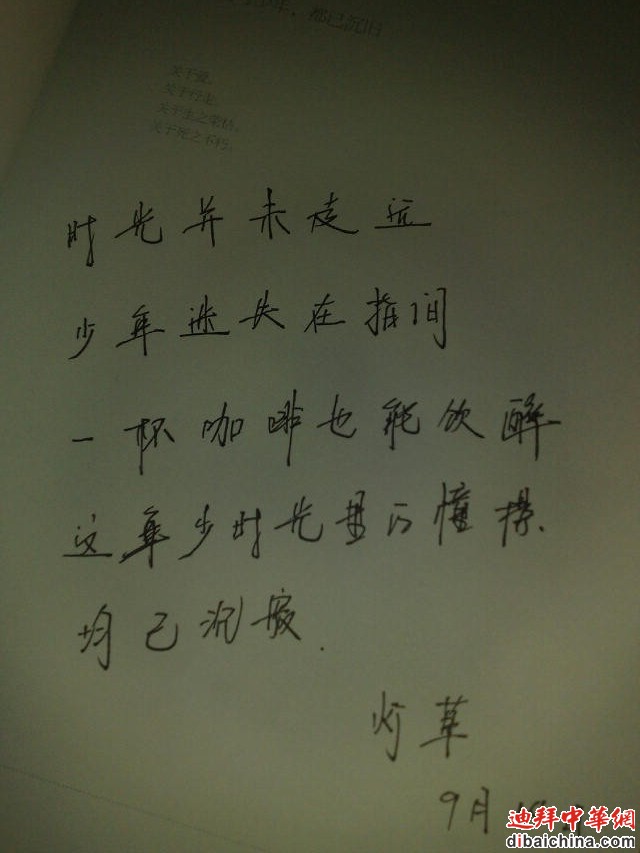 少年，都已沉旧
关于爱，
关于行走，
关于生之荣枯，
关于死之不朽。
时光并未走远
少年迷失在指间
一杯咖啡也能饮醉
这年少时光里的憧憬
均已沉寂.
灯草
9月
迪拜中華網
dibaichina.com